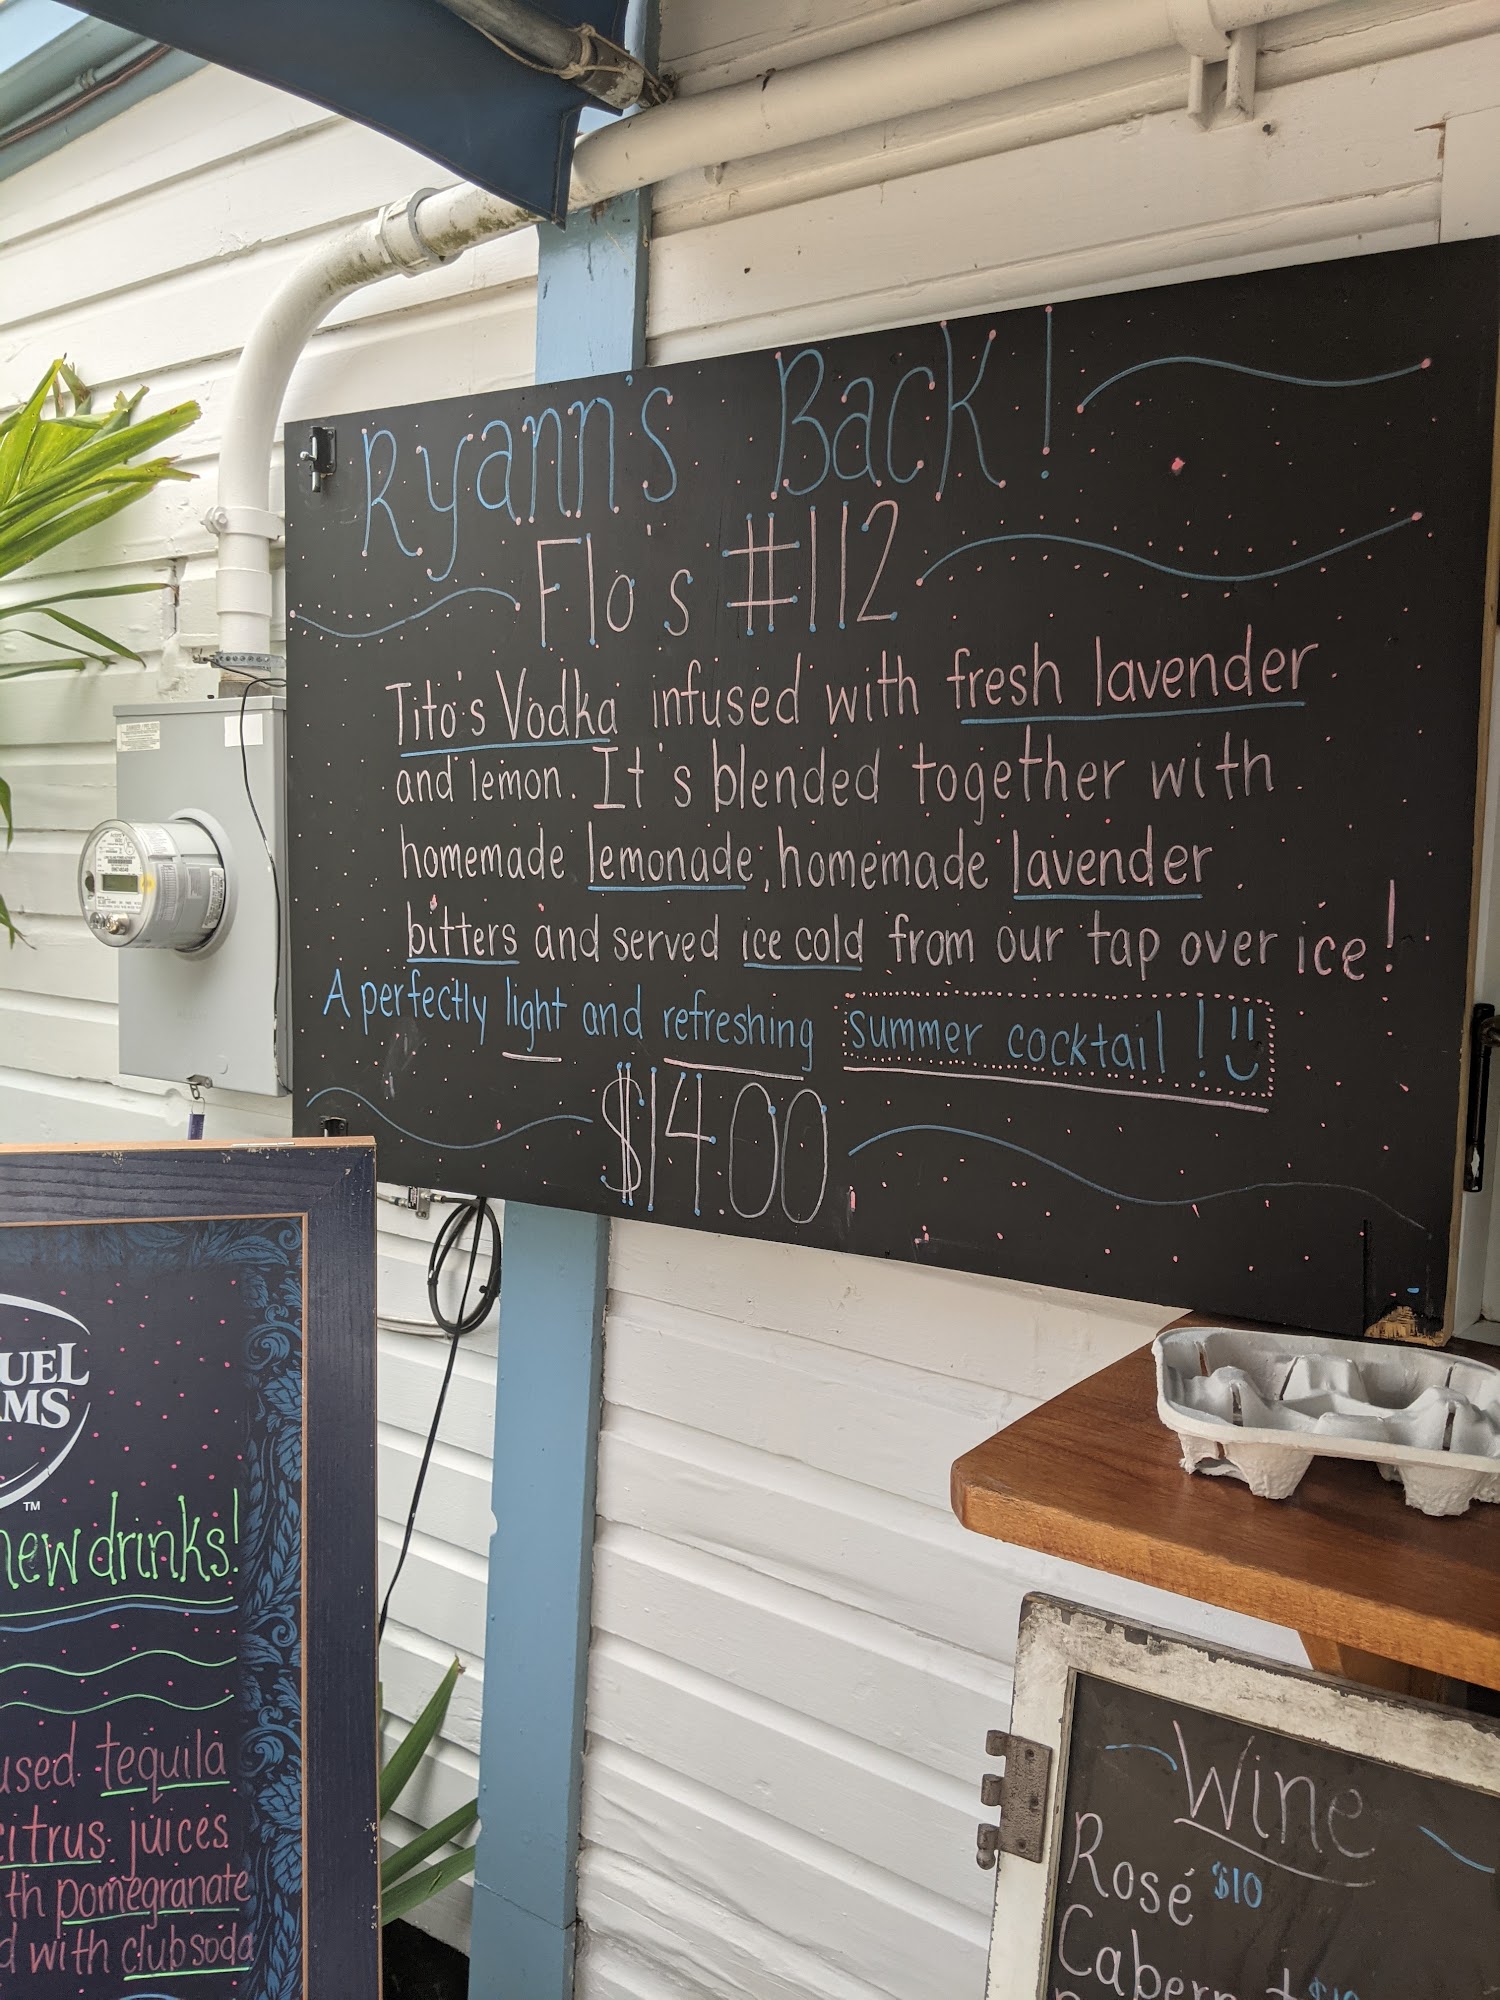 Ryann's Back!
Flo's #112
Tito's Vodka infused with fresh lavender
and lemon. It's blended together with
homemade lemonade, homemade lavender
bitters and served ice cold from our tap over ice!
A perfectly light and refreshing summer cocktail!
$14.00
UEL
MS
TM
new drinks!
used tequila
citrus juices
th pomegranate
d with club soda
Wine
Rosé $10